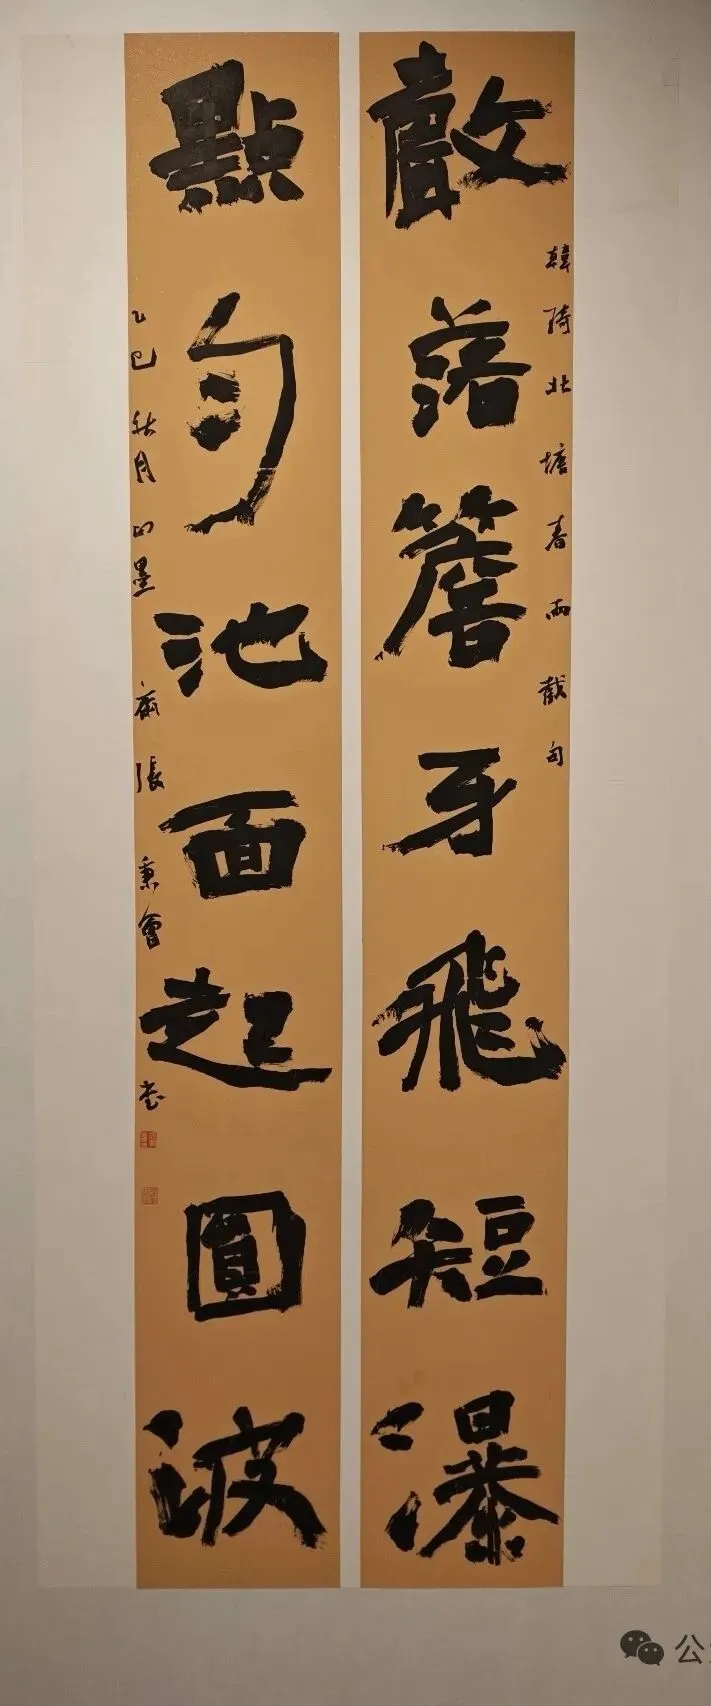 落簷牙飛短瀑
韓琦北塘春雨截句
點勻池面起圓波
乙巳秋月 墨齋張秉會書
公